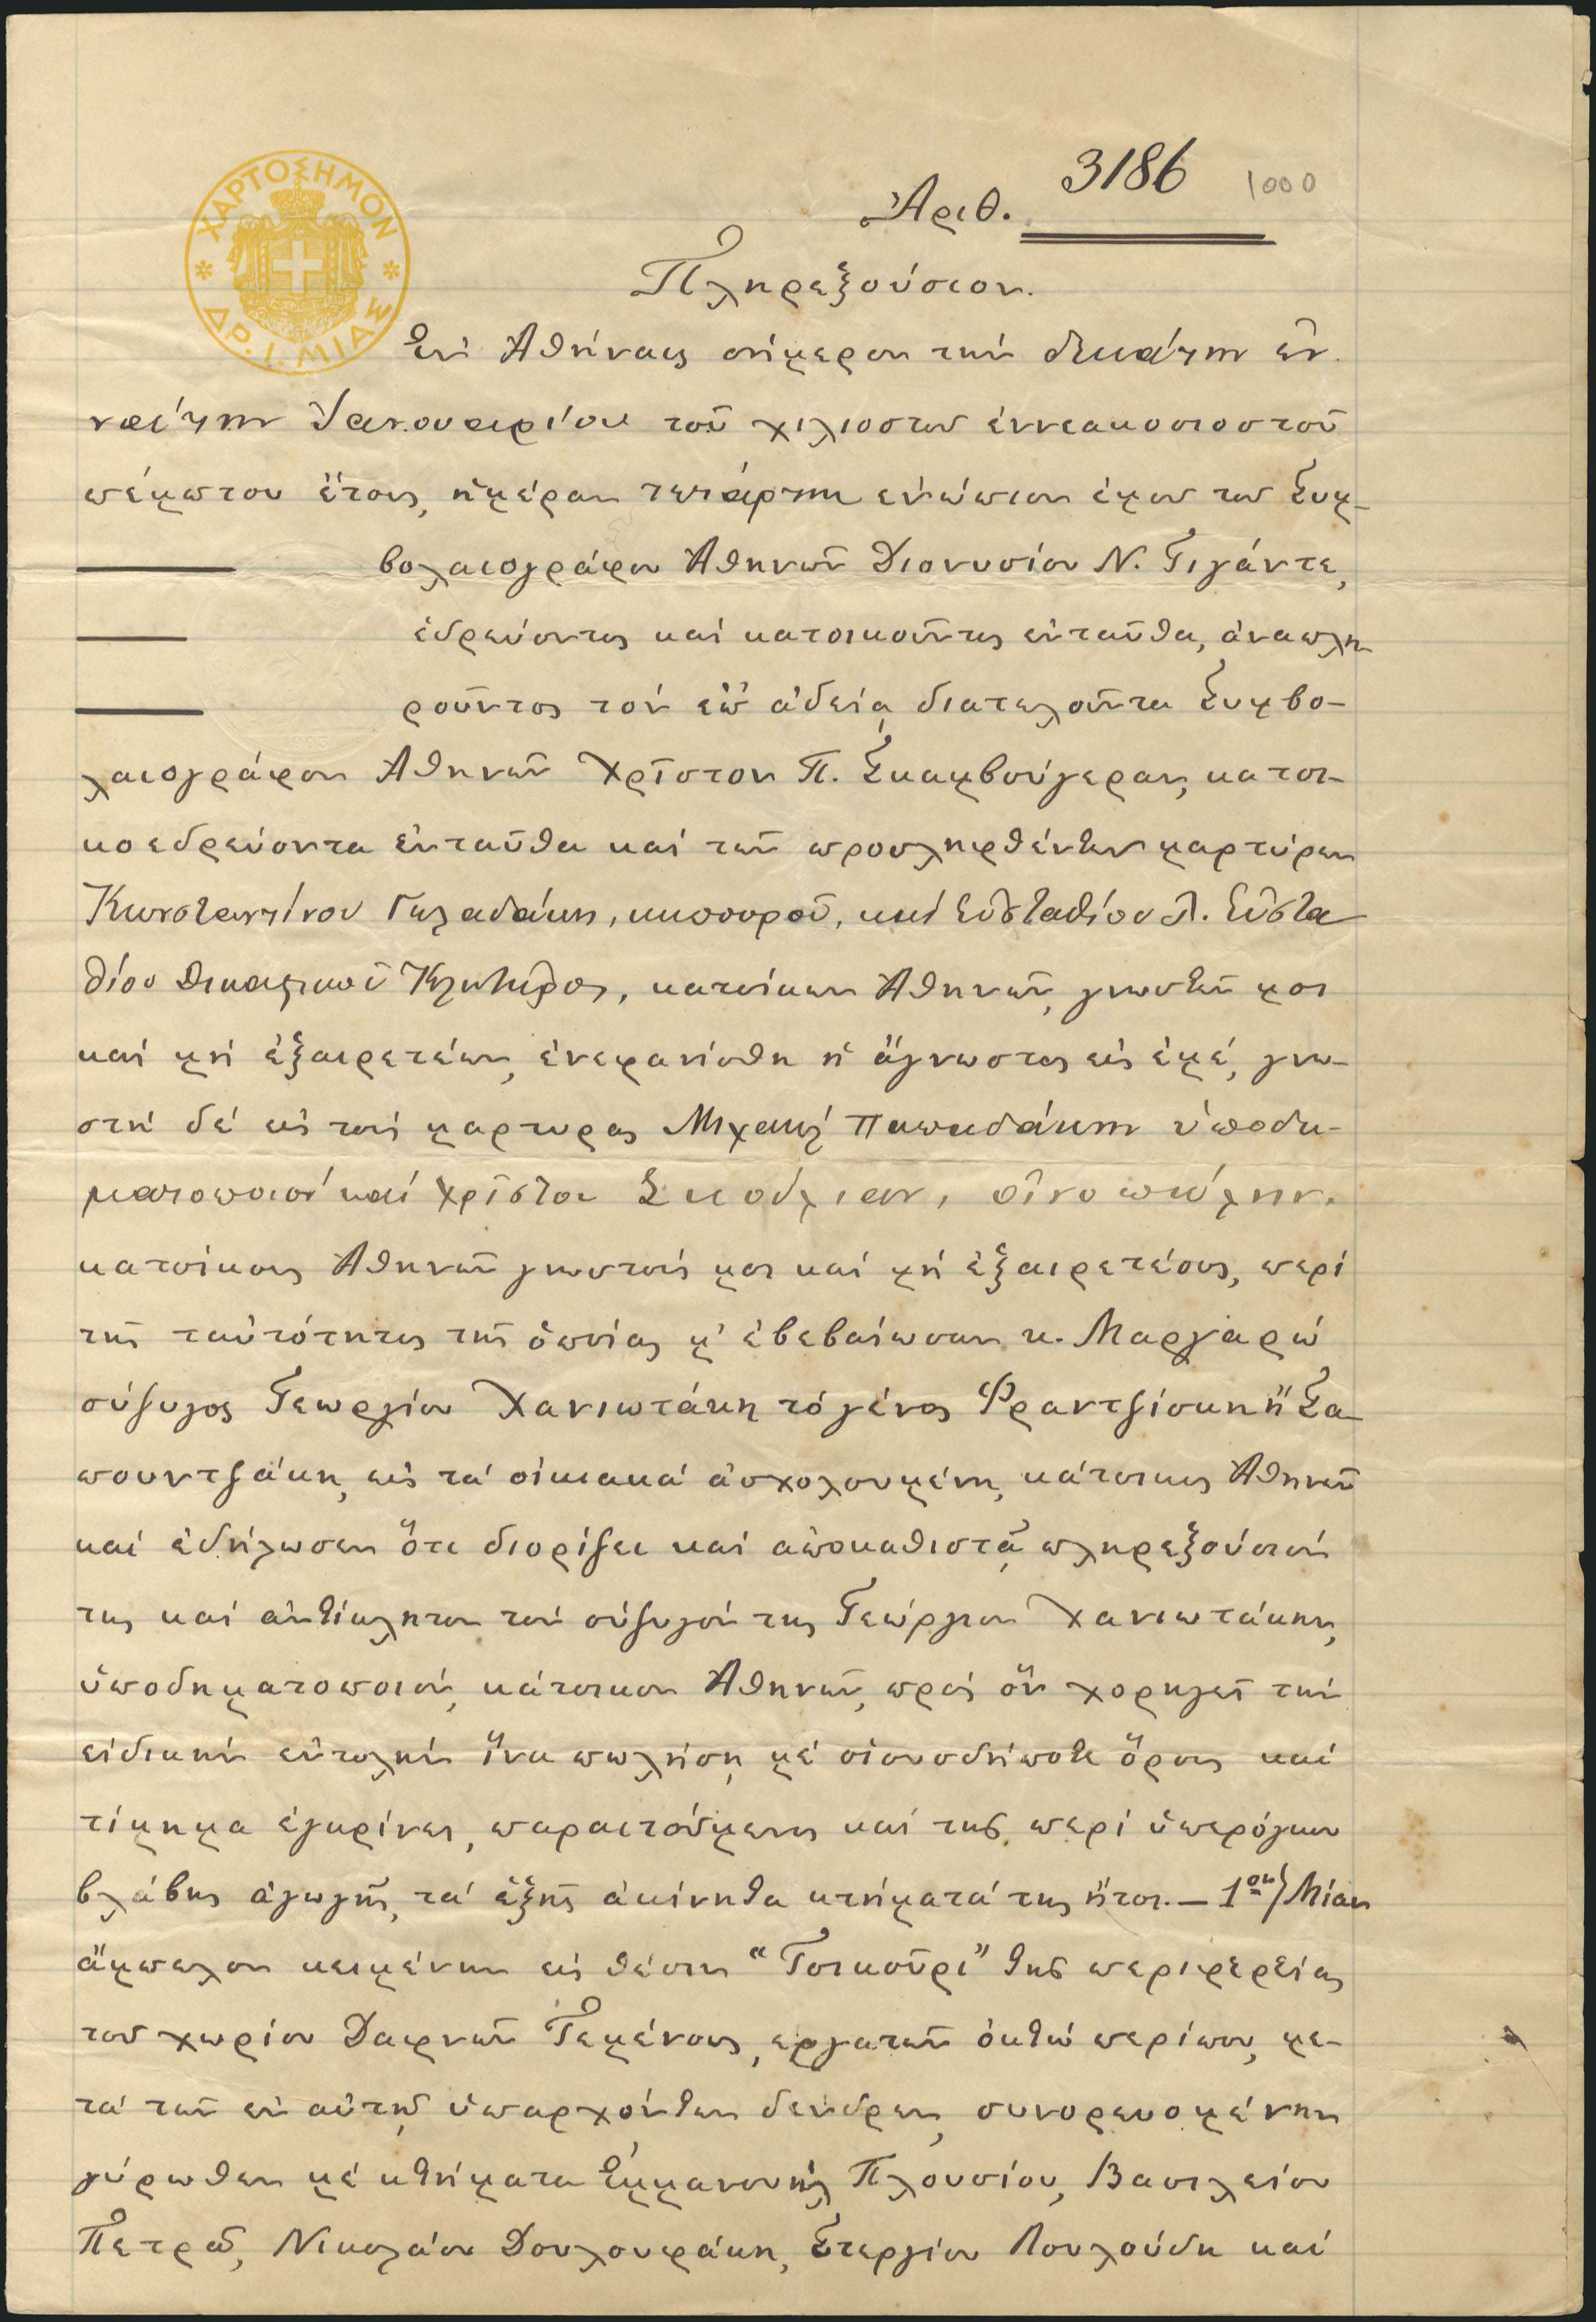 ΧΑΡΤΟΣΗΜΟΝ
ΔΡ. 1. ΜΙΑΣ
Ἀριθ. 3186 1000
Πληρεξούσιον.
Ἐν Ἀθήναις σήμερον τήν δεκάτην ἐν
νάτην Ἰανουαρίου τοῦ χιλιοστοῦ ἐννεακοσιοστοῦ
πέμπτου ἔτους, ἡμέραν τετάρτην ἐνώπιον ἐμοῦ τοῦ Συμ-
βολαιογράφου Ἀθηνῶν Διονυσίου Ν. Γιγάντε,
ἑδρεύοντος καί κατοικοῦντος ἐνταῦθα, ἀναπλη
ροῦντος τόν ἐπ' ἀδείᾳ διατελοῦντα Συμβο-
λαιογράφον Ἀθηνῶν Χρῖστον Π. Σκαμβούγεραν, κατοι-
κοεδρεύοντα ἐνταῦθα καί τῶν προσληφθέντων μαρτύρων
Κωνσταντίνου κηπουροῦ, καί Εὐσταθίου Λ. Εὐστα
θίου δικαστικοῦ Κλητῆρος, κατοίκων Ἀθηνῶν, γνωστῶν μοι
καί μή ἐξαιρετέων, ἐνεφανίσθη ἡ ἄγνωστος εἰς ἐμέ, γνω-
στή δέ εἰς τούς μάρτυρας Μιχαήλ Παπαδάκην ὑποδη-
ματοποιόν καί Χρῖστον Σκούλιαν, οἰνοπώλην.
κατοίκους Ἀθηνῶν γνωστούς μοι καί μή ἐξαιρετέους, περί
τῆς ταὐτότητος τῆς ὁποίας μ' ἐβεβαίωσαν κ. Μαργαρώ
σύζυγος Γεωργίου Χανιωτάκη τό γένος Φραντζίσκη ἤ Σα-
πουντζάκη, εἰς τά οἰκιακά ἀσχολουμένη, κάτοικος Ἀθηνῶν
καί ἐδήλωσεν ὅτι διορίζει καί ἀποκαθιστᾷ πληρεξούσιόν
της καί ἀντίκλητον τόν σύζυγόν της Γεώργιον Χανιωτάκην,
ὑποδηματοποιόν, κάτοικον Ἀθηνῶν, πρός ὅν χορηγεῖ τήν
εἰδικήν ἐντολήν ἵνα πωλήσῃ μέ οἱουσδήποτε ὅρους καί
τίμημα ἐγκρίνει, παραιτούμενος καί τῆς περί ὑπερόγκου
βλάβης ἀγωγῆς, τά ἑξῆς ἀκίνητα κτήματά της ἤτοι. — 1ον) Μίαν
ἄμπελον κειμένην εἰς θέσιν "Τσικοῦρι" τῆς περιφερείας
τοῦ χωρίου Δαφνῶν Τεμένους, ἐργατῶν ὀκτώ περίπου, με-
τά τῶν ἐν αὐτῇ ὑπαρχόντων δένδρων, συνορευομένην
γύρωθεν μέ κτήματα Ἐμμανουήλ Πλουσίου, Βασιλείου
Πετρᾶ, Νικολάου Δουλουφάκη, Στεργίου Λουλούδη καί